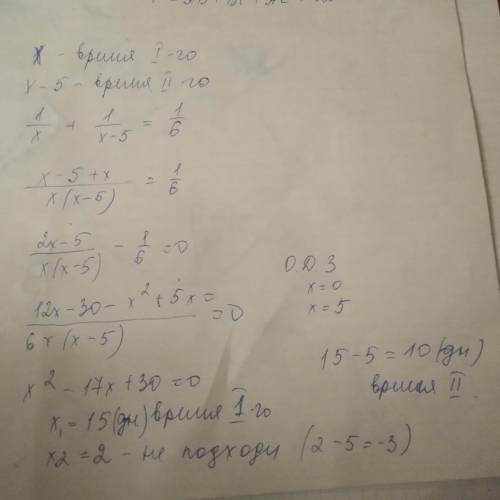 x - время I-го
x - 5 - время II-го
1/x + 1/(x-5) = 1/6
(x-5+x)/(x(x-5)) = 1/6
(2x-5)/(x(x-5)) - 1/6 = 0
(12x-30-x²+5x=)/(6x(x-5)) = 0
О.Д.З
x=0
x=5
x² - 17x + 30 = 0
x₁ = 15 (дн) время I-го
x2 = 2 - не подходи (2-5=-3)
15-5=10 (дн)
время II